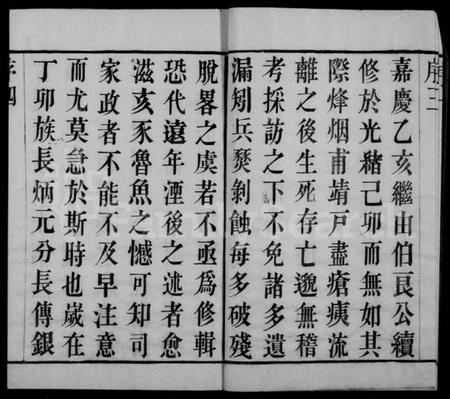 序三
嘉慶乙亥繼由伯良公續
修於光緒己卯而無如其
際烽烟甫靖戸盡瘡痍流
離之後生死存亡邈無稽
考採訪之下不免諸多遺
漏矧兵燹剝蝕每多破殘
脫畧之虞若不亟爲修輯
恐代遠年湮後之述者愈
滋亥豕魯魚之憾可知司
家政者不能不及早注意
而尤莫急於斯時也歲在
丁卯族長炳元分長傳銀
序四